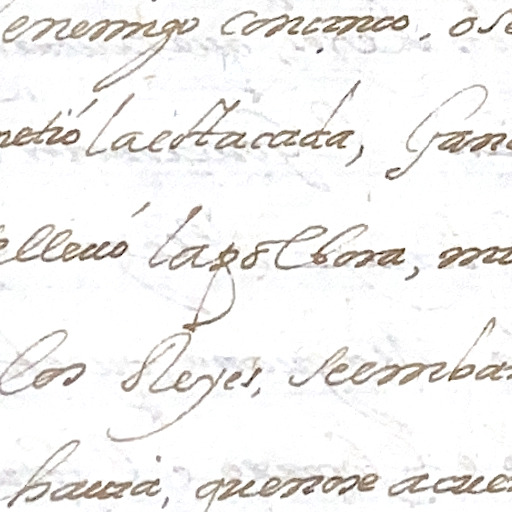 enemigo con cinco, o se
metió la estacada, Gano
ellevó la polbora, ma
los Reyes, se embar
havia, que no se acue